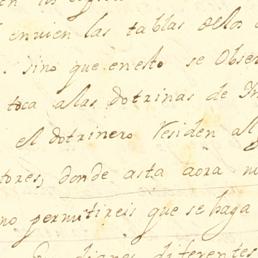 envien las tablas dela
sino que enesto se Obser
toca alas dotrinas de In
el dotrinero Residen al
tores, donde asta aora n
no permitireis que se haga
diferentes